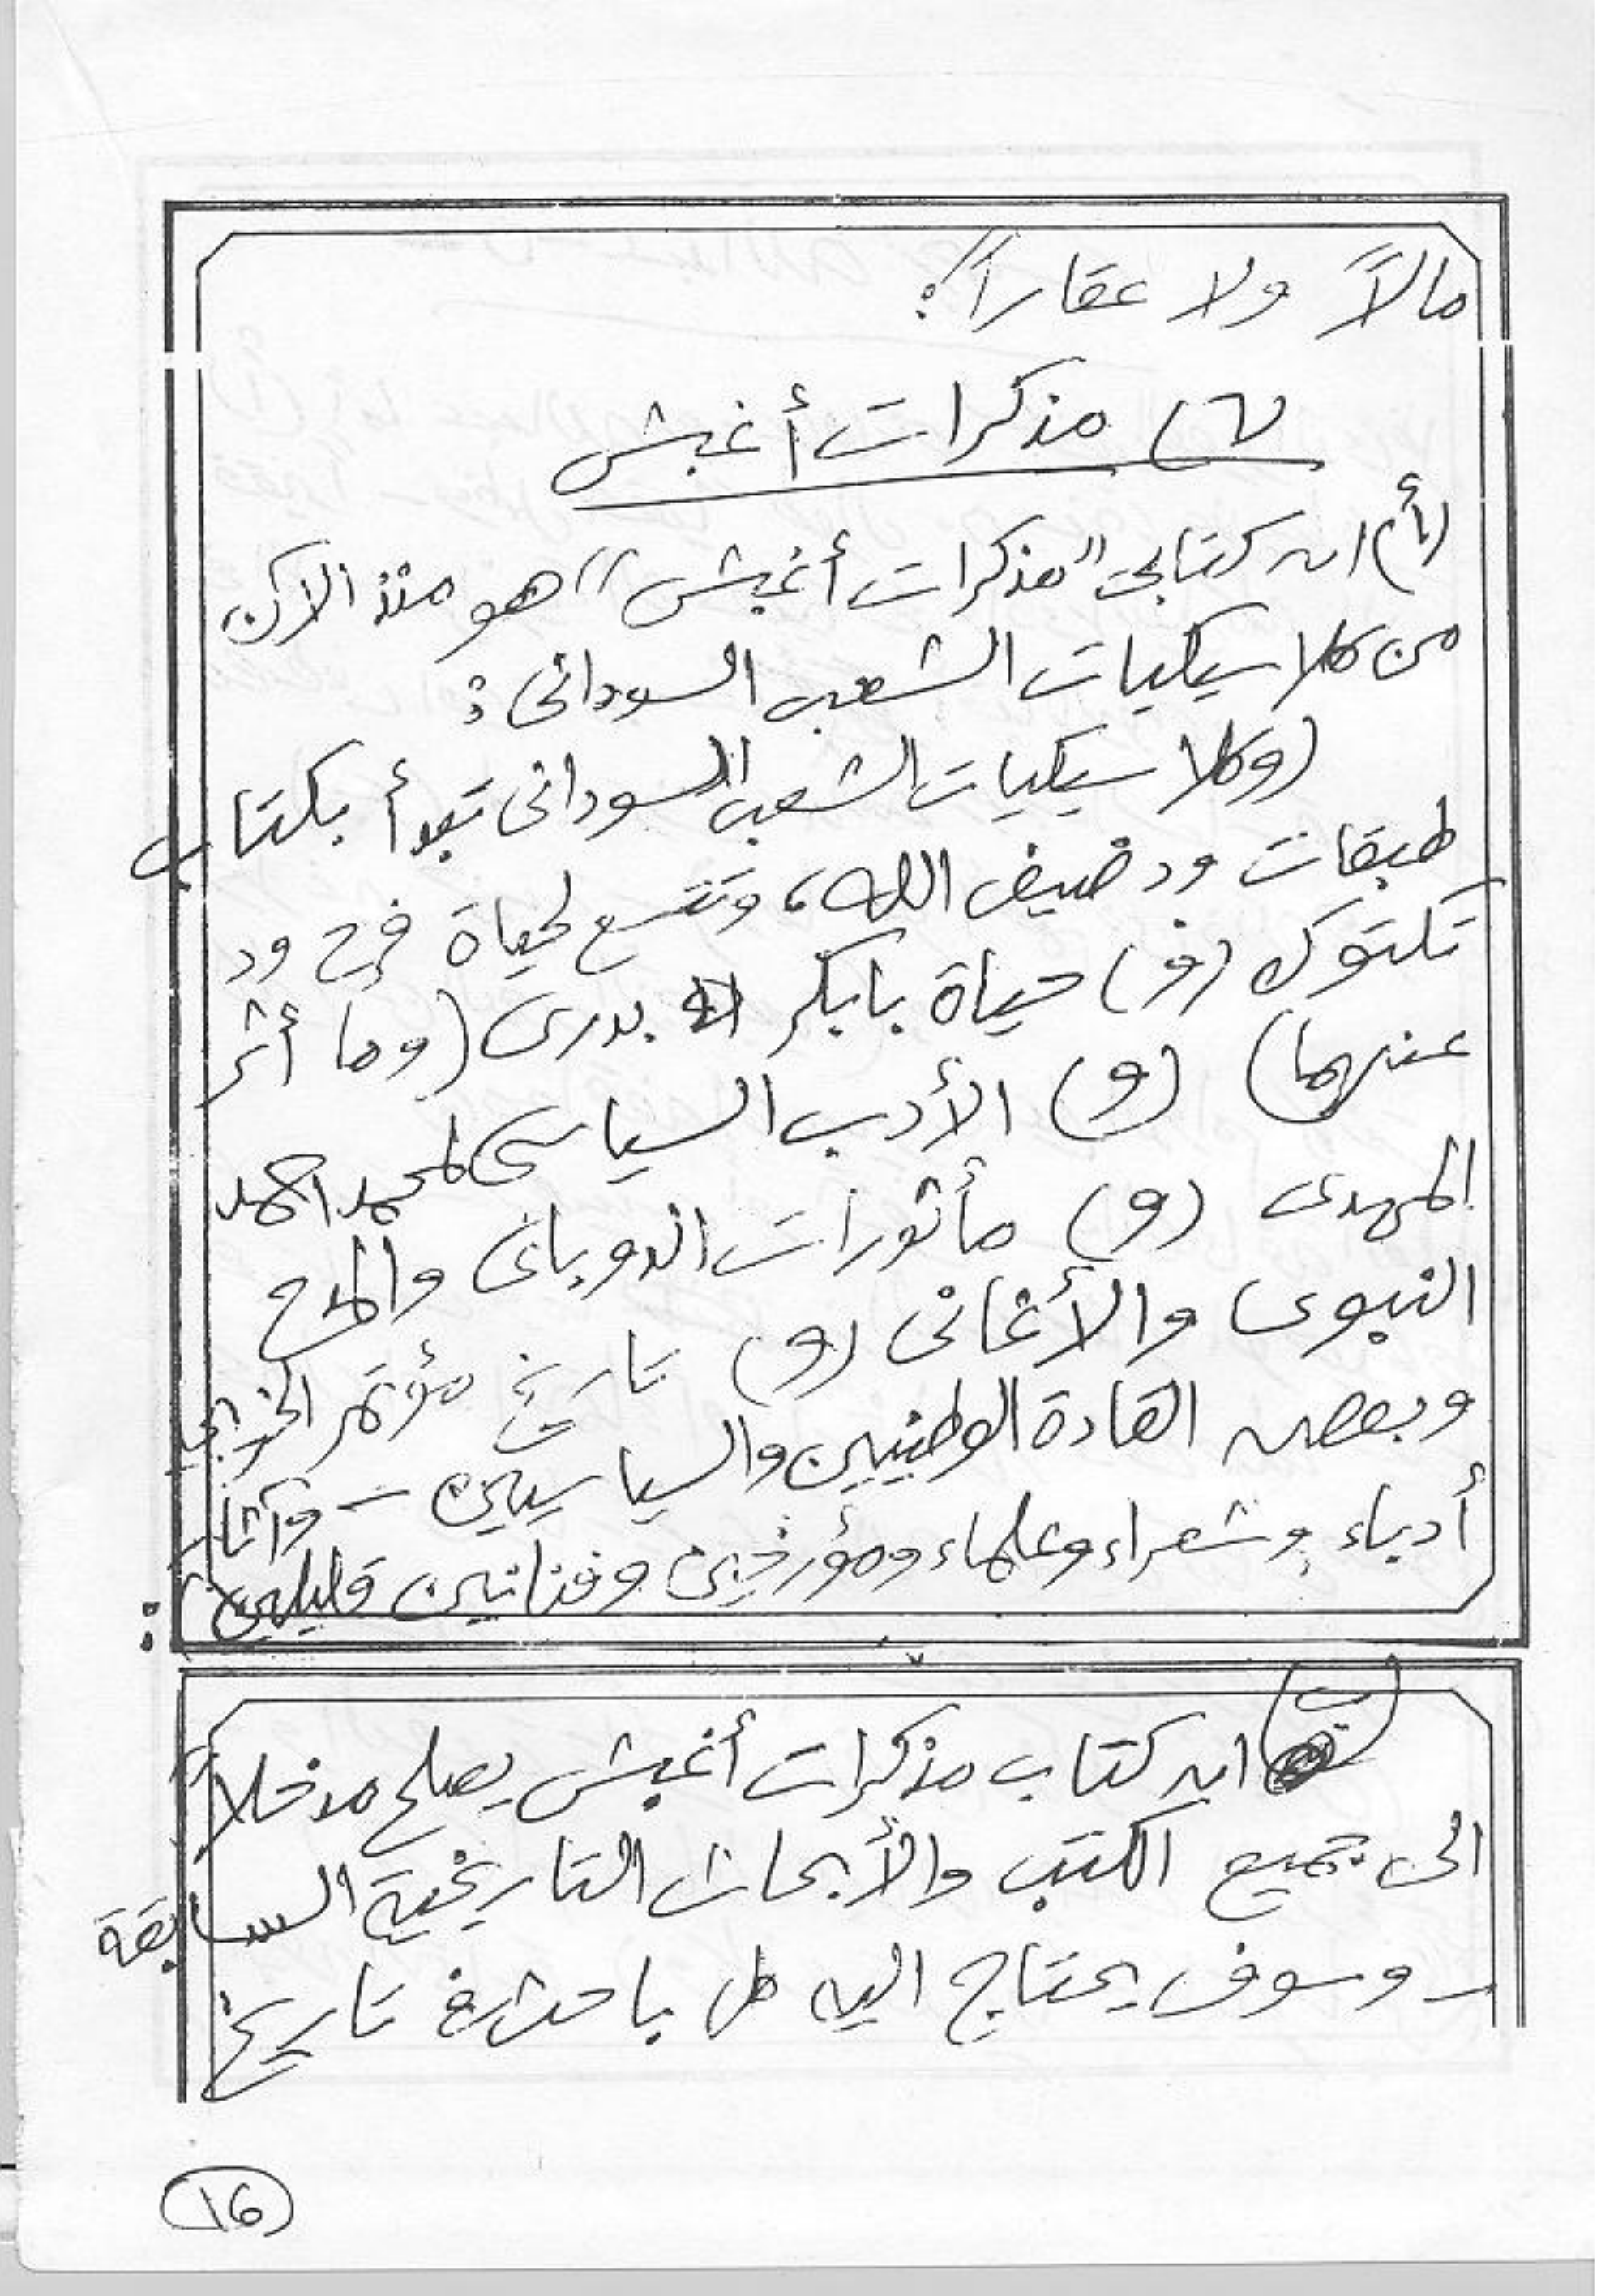 مالاً ولا عقاراً:
٦) مذكرات أغبش
(أ) ان كتابي "مذكرات أغبش" هو منذ الآن
من كلاسيكيات الشعب السوداني:
(وكلاسيكيات الشعب السوداني تبدأ بكتاب
طبقات ود ضيف الله، وتتسع لحياة فرح ود
تكتوك (و) حياة بابكر بدرى (وما أثر
عنهما) (و) الأدب السياسي لمحمد احمد
المهدى (و) مأثورات الدوباي والمدح
النبوى والأغانى (و) تاريخ مؤتمر الخريجين
وبعض القادة الوطنيين والسياسيين – وآثار
أدباء وشعراء وعلماء ومؤرخين وفنانين قليلين):
(ب) ان كتاب مذكرات أغبش يصلح مدخلاً
الى جميع الكتب والأبحاث التاريخية السابقة
– وسوف يحتاج اليه كل باحث في تاريخ
16